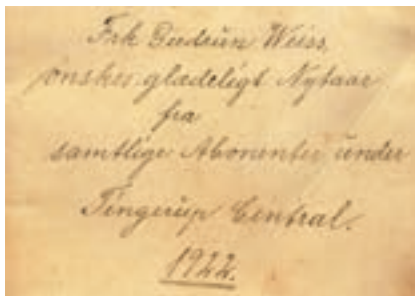 Frk Gudrun Weiss,
ønskes glædeligt Nytaar
fra
samtlige Abonenter under
Tingerup Central.
1922.